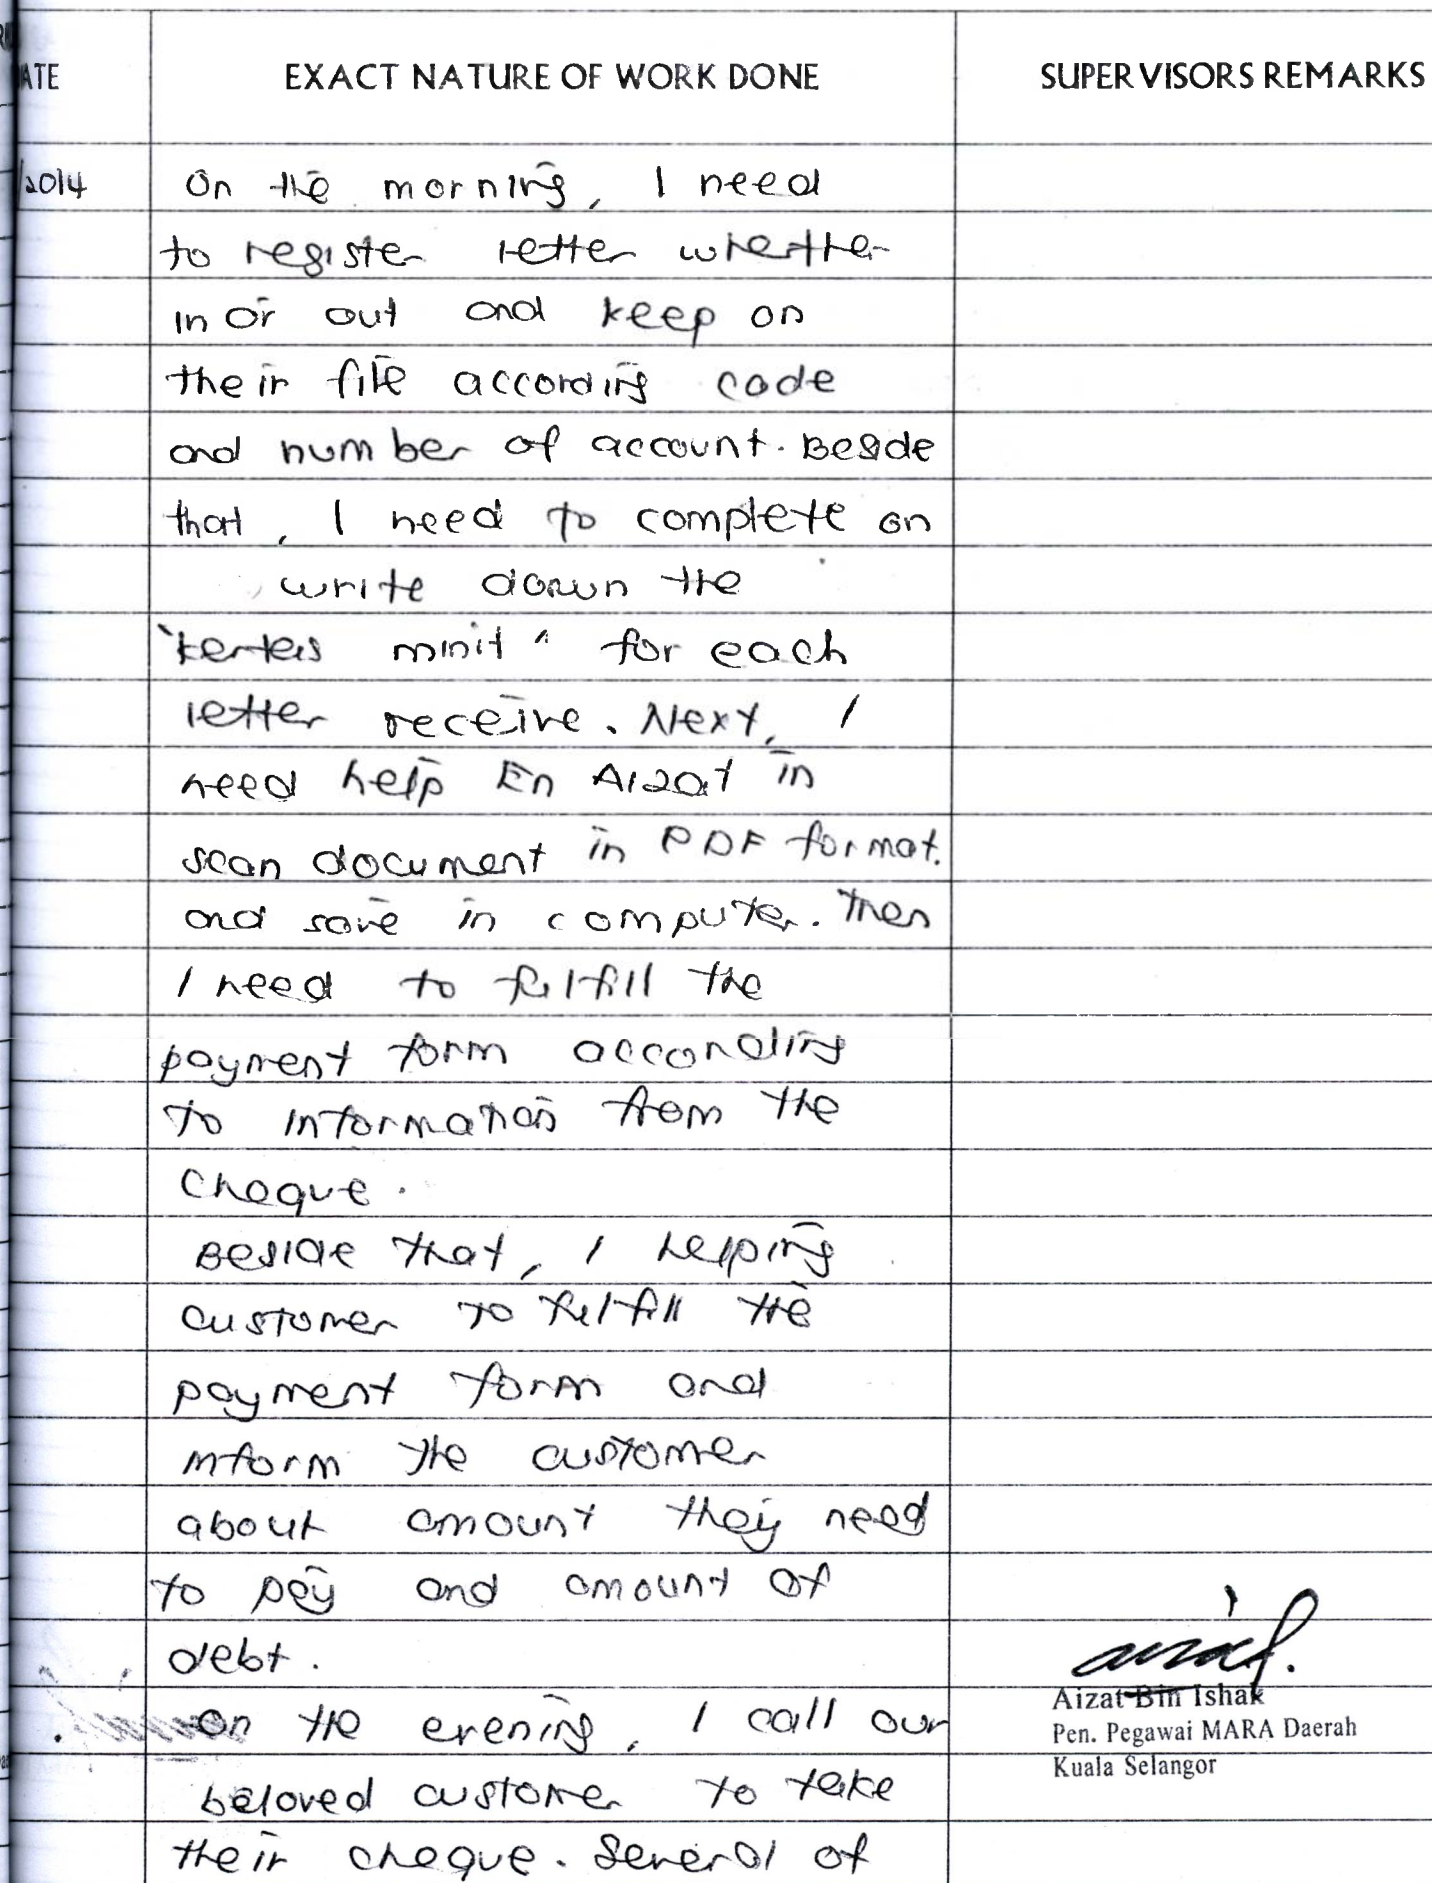 ATE
EXACT NATURE OF WORK DONE
SUPERVISORS REMARKS
/2014
On the morning, I need
to register letter whether
in or out and keep on
their file according code
and number of account. Beside
that, I need to complete on
write down the
"kertas minit" for each
letter receive. Next, I
need help En Aizat in
scan document in PDF format.
and save in computer. Then
I need to fulfill the
payment form according
to information from the
cheque.
Beside that, I helping
customer to fulfill the
payment form and
inform the customer
about amount they need
to pay and amount of
debt.
On the evening, I call our
beloved customer to take
their cheque. Several of
Aizat Bin Ishak
Pen. Pegawai MARA Daerah
Kuala Selangor